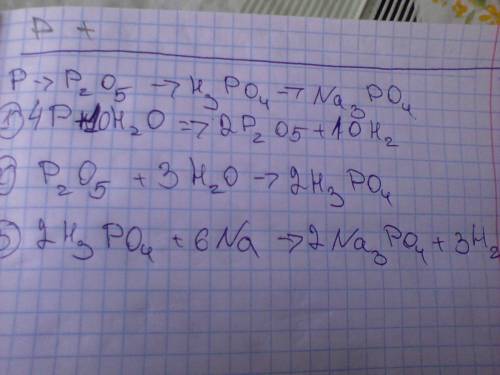 P +
P → P₂O₅ → H₃PO₄ → Na₃PO₄
1) 4P + 10H₂O => 2P₂O5 + 10H₂
P₂O₅ + 3H₂O → 2H₃PO₄
3) 2H₃PO₄ + 6Na → 2Na₃PO₄ + 3H₂